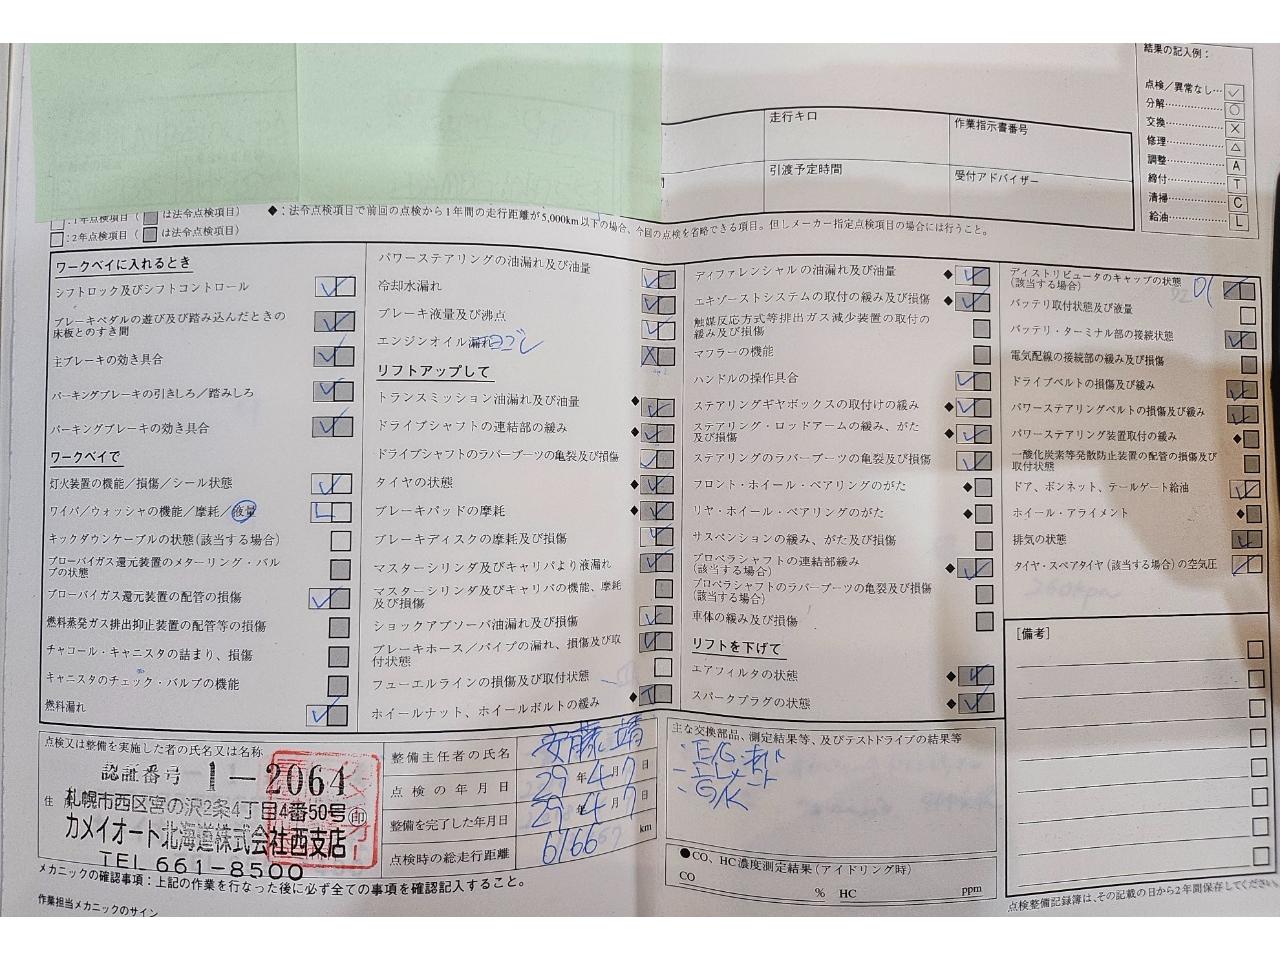 結果の記入例：
点検／異常なし… ✓
分解… ○
交換… ×
修理… △
調整… A
締付… T
清掃… C
給油… L
走行キロ
作業指示書番号
引渡予定時間
受付アドバイザー
：1年点検項目（ は法令点検項目）
：2年点検項目（ は法令点検項目）
◆：法令点検項目で前回の点検から1年間の走行距離が5,000km以下の場合、今回の点検を省略できる項目。但しメーカー指定点検項目の場合には行うこと。
ワークベイに入れるとき
シフトロック及びシフトコントロール
ブレーキペダルの遊び及び踏み込んだときの
床板とのすき間
主ブレーキの効き具合
パーキングブレーキの引きしろ／踏みしろ
パーキングブレーキの効き具合
ワークベイで
灯火装置の機能／損傷／シール状態
ワイパ／ウォッシャの機能／摩耗／液量
キックダウンケーブルの状態（該当する場合）
ブローバイガス還元装置のメターリング・バル
ブの状態
ブローバイガス還元装置の配管の損傷
燃料蒸発ガス排出抑止装置の配管等の損傷
チャコール・キャニスタの詰まり、損傷
キャニスタのチェック・バルブの機能
燃料漏れ
パワーステアリングの油漏れ及び油量
冷却水漏れ
ブレーキ液量及び沸点
エンジンオイル漏れ
リフトアップして
トランスミッション油漏れ及び油量
ドライブシャフトの連結部の緩み
ドライブシャフトのラバーブーツの亀裂及び損傷
タイヤの状態
ブレーキパッドの摩耗
ブレーキディスクの摩耗及び損傷
マスターシリンダ及びキャリパより液漏れ
マスターシリンダ及びキャリパの機能、摩耗
及び損傷
ショックアブソーバ油漏れ及び損傷
ブレーキホース／パイプの漏れ、損傷及び取
付状態
フューエルラインの損傷及び取付状態
ホイールナット、ホイールボルトの緩み
ディファレンシャルの油漏れ及び油量
エキゾーストシステムの取付の緩み及び損傷
触媒反応方式等排出ガス減少装置の取付の
緩み及び損傷
マフラーの機能
ハンドルの操作具合
ステアリングギヤボックスの取付けの緩み
ステアリング・ロッドアームの緩み、がた
及び損傷
ステアリングのラバーブーツの亀裂及び損傷
フロント・ホイール・ベアリングのがた
リヤ・ホイール・ベアリングのがた
サスペンションの緩み、がた及び損傷
プロペラシャフトの連結部緩み
（該当する場合）
プロペラシャフトのラバーブーツの亀裂及び損傷
（該当する場合）
車体の緩み及び損傷
リフトを下げて
エアフィルタの状態
スパークプラグの状態
ディストリビュータのキャップの状態
（該当する場合）
バッテリ取付状態及び液量
バッテリ・ターミナル部の接続状態
電気配線の接続部の緩み及び損傷
ドライブベルトの損傷及び緩み
パワーステアリングベルトの損傷及び緩み
パワーステアリング装置取付の緩み
一酸化炭素等発散防止装置の配管の損傷及び
取付状態
ドア、ボンネット、テールゲート給油
ホイール・アライメント
排気の状態
タイヤ・スペアタイヤ（該当する場合）の空気圧
260kpa
［備考］
点検又は整備を実施した者の氏名又は名称
認証番号 1-2064
住 札幌市西区宮の沢2条4丁目4番50号 ㊞
カメイオート北海道株式会社西支店
TEL 661-8500
整備主任者の氏名 安藤 靖
点検の年月日 29年4月7日
整備を完了した年月日 29年4月7日
点検時の総走行距離 6166 km
主な交換部品、測定結果等、及びテストドライブの結果等
・E/G オイル
・エレメント
・G/K
●CO、HC濃度測定結果（アイドリング時）
CO % HC ppm
メカニックの確認事項：上記の作業を行なった後に必ず全ての事項を確認記入すること。
作業担当メカニックのサイン
点検整備記録簿は、その記載の日から2年間保存してください。